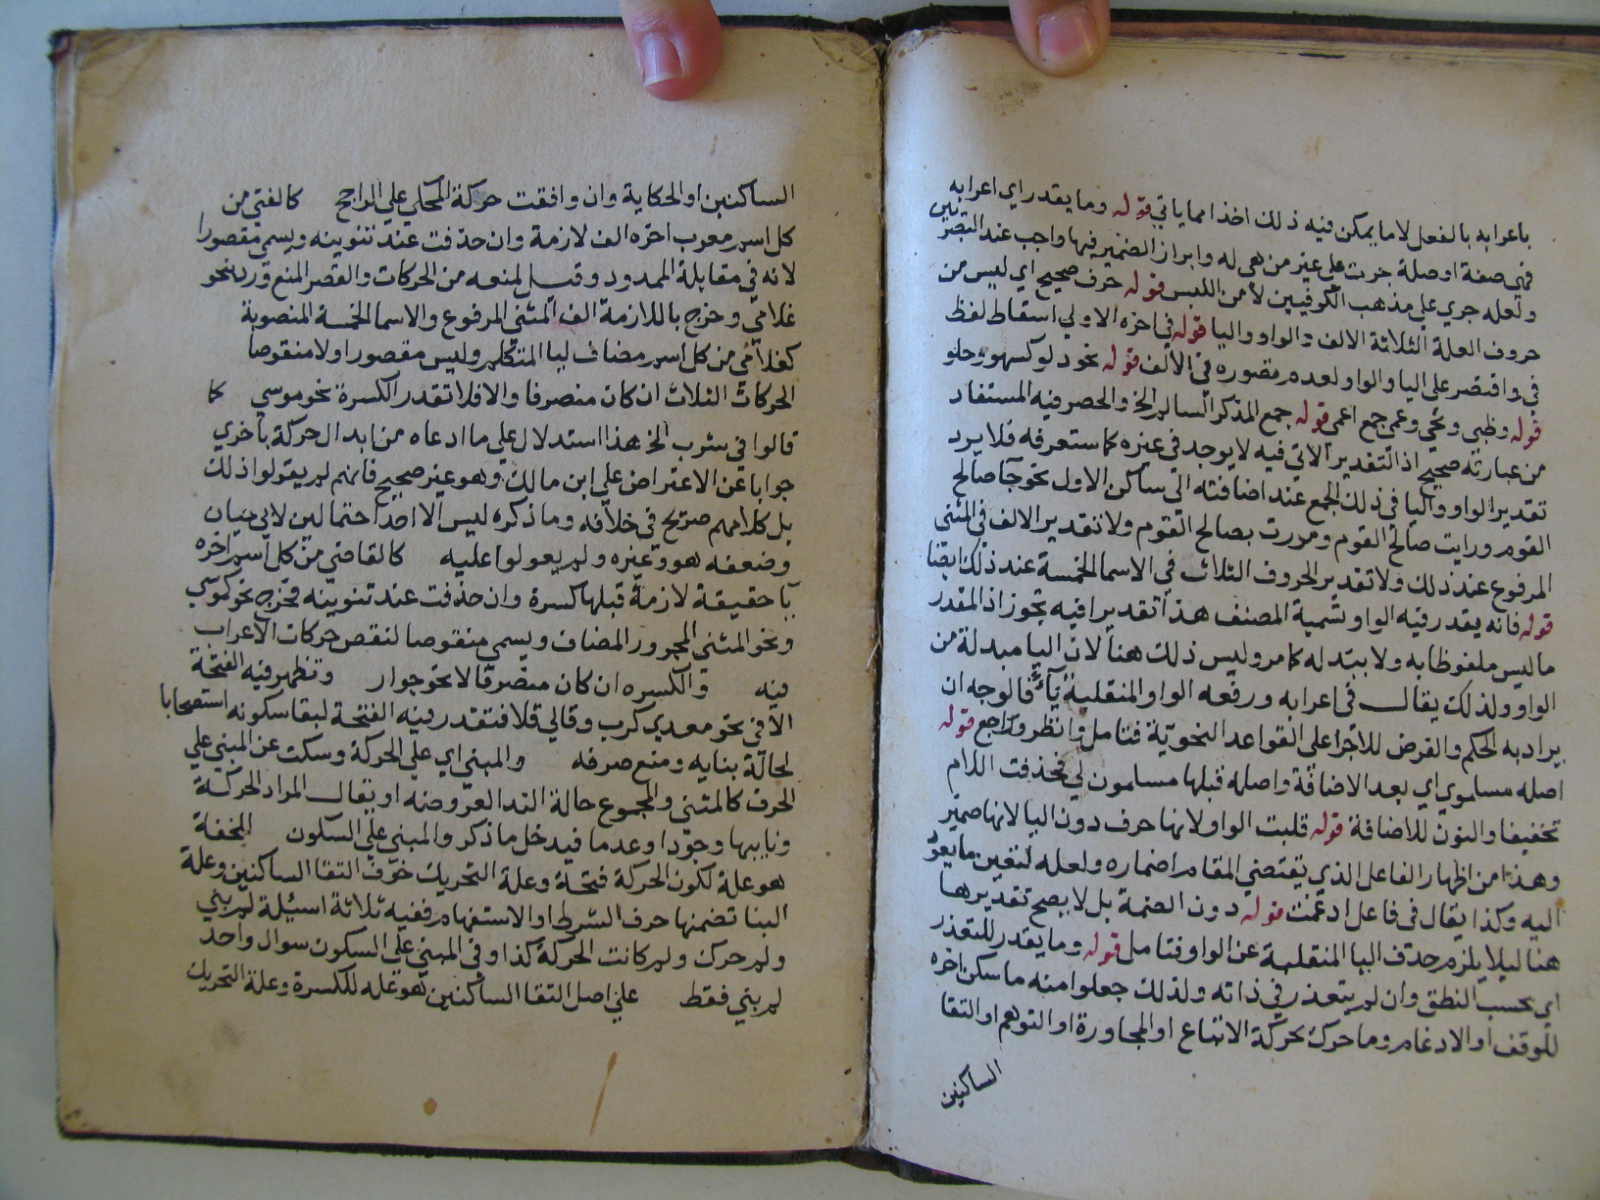 باعرابه بالفعل لا ما يمكن فيه ذلك اخذا مما ياتي قوله وما يقدر اي اعرابه
فهي صفة او صلة جرت علي غير من هي له وابراز الضمير فيها واجب عند البصريين
ولعله جري علي مذهب الكوفيين لأمن اللبس قوله حرف صحيح اي ليس من
حروف العلة الثلاثة الالف والواو واليا قوله في اخره الاولي اسقاط لفظ
في واقتصر علي اليا والواو لعدم تصوره في الألف قوله نحو دلو كسهو وحلو
قوله وظبي ونحي وعمي جمع اعمي قوله جمع المذكر السالم الخ والحصر فيه المستفاد
من عبارته صحيح اذ التقدير الآتي فيه لا يوجد في غيره كما ستعرفه فلا يرد
تقدير الواو واليا في ذلك الجمع عند اضافته الي ساكن الاول نحو جآ صالح
القوم ورايت صالح القوم ومررت بصالح القوم ولا تقدير الالف في المثني
المرفوع عند ذلك ولا تقدير الحروف الثلاث في الاسما الخمسة عند ذلك ايضا
قوله فانه يقدر فيه الواو وتسمية المصنف هذا تقديرا فيه تجوز اذ المقدر
ما ليس ملفوظا به ولا ببدله كما مر وليس ذلك هنا لان اليا مبدلة من
الواو ولذلك يقال في اعرابه ورفعه الواو المنقلبة يآءً فالوجه ان
يراد به الحكم والفرض للاجرا علي القواعد النحوية فتامل وانظر وراجع قوله
اصله مسلموي اي بعد الاضافة واصله قبلها مسلمون لي فحذفت اللام
تخفيفا والنون للاضافة قوله قلبت الواو لانها حرف دون اليا لانها ضمير
وهذا من اظهار الفاعل الذي يقتضي المقام اضماره ولعله لتعين ما يعود
اليه وكذا يقال في فاعل ادغمت قوله دون الضمة بل لا يصح تقديرها
هنا ليلا يلزم حذف اليا المنقلبة عن الواو فتامل قوله وما يقدر للتعذر
اي بحسب النطق وان لم يتعذر في ذاته ولذلك جعلوا منه ما سكن اخره
للوقف او الادغام وما حرك بحركة الاتباع او المجاورة او التوهم او التقا
الساكنين
الساكنين او الحكاية وان وافقت حركة المحكي علي الراجح كالفتي من
كل اسم معرب اخره الف لازمة وان حذفت عند تنوينه ويسمي مقصورا
لانه في مقابلة الممدود وقيل لمنعه من الحركات والقصر المنع ورد بنحو
غلامي وخرج باللازمة الف المثني المرفوع والاسما الخمسة المنصوبة
كغلامي من كل اسم مضاف ليا المتكلم وليس مقصورا ولا منقوصا
الحركات الثلاث ان كان منصرفا والا فلا تقدر الكسرة نحو موسي كما
قالوا في سرب الخ هذا استدلال علي ما ادعاه من ابدال حركة باخري
جوابا عن الاعتراض علي ابن مالك وهو غير صحيح فانهم لم يقولوا ذلك
بل كلامهم صريح في خلافه وما ذكره ليس الا احد احتمالين لابي حيان
وضعفه هو وغيره ولم يعولوا عليه كالقاضي من كل اسم اخره
يآ حقيقة لازمة قبلها كسرة وان حذفت عند تنوينه فخرج نحو كرسي
ونحو المثني المجرور المضاف ويسمي منقوصا لنقص حركات الاعراب
فيه والكسره ان كان منصرفا لا نحو جوار وتظهر فيه الفتحة
الا في نحو معدي كرب وقالي قلا فتقدر فيه الفتحة لبقا سكونه استصحابا
لحالة بنايه ومنع صرفه والمبني اي علي الحركة وسكت عن المبني علي
الحرف كالمثني والمجموع حالة الندا لعروضه او يقال المراد الحركة
ونايبها وجودا وعدما فيدخل ما ذكر والمبني علي السكون للخفة
هو علة لكون الحركة فتحة وعلة التحريك خوف التقا الساكنين وعلة
البنا تضمنها حرف الشرط او الاستفهام ففيه ثلاثة اسئلة لم بني
ولم حرك ولم كانت الحركة كذا وفي المبني علي السكون سوال واحد
لم بني فقط علي اصل التقا الساكنين هو علة للكسرة وعلة التحريك